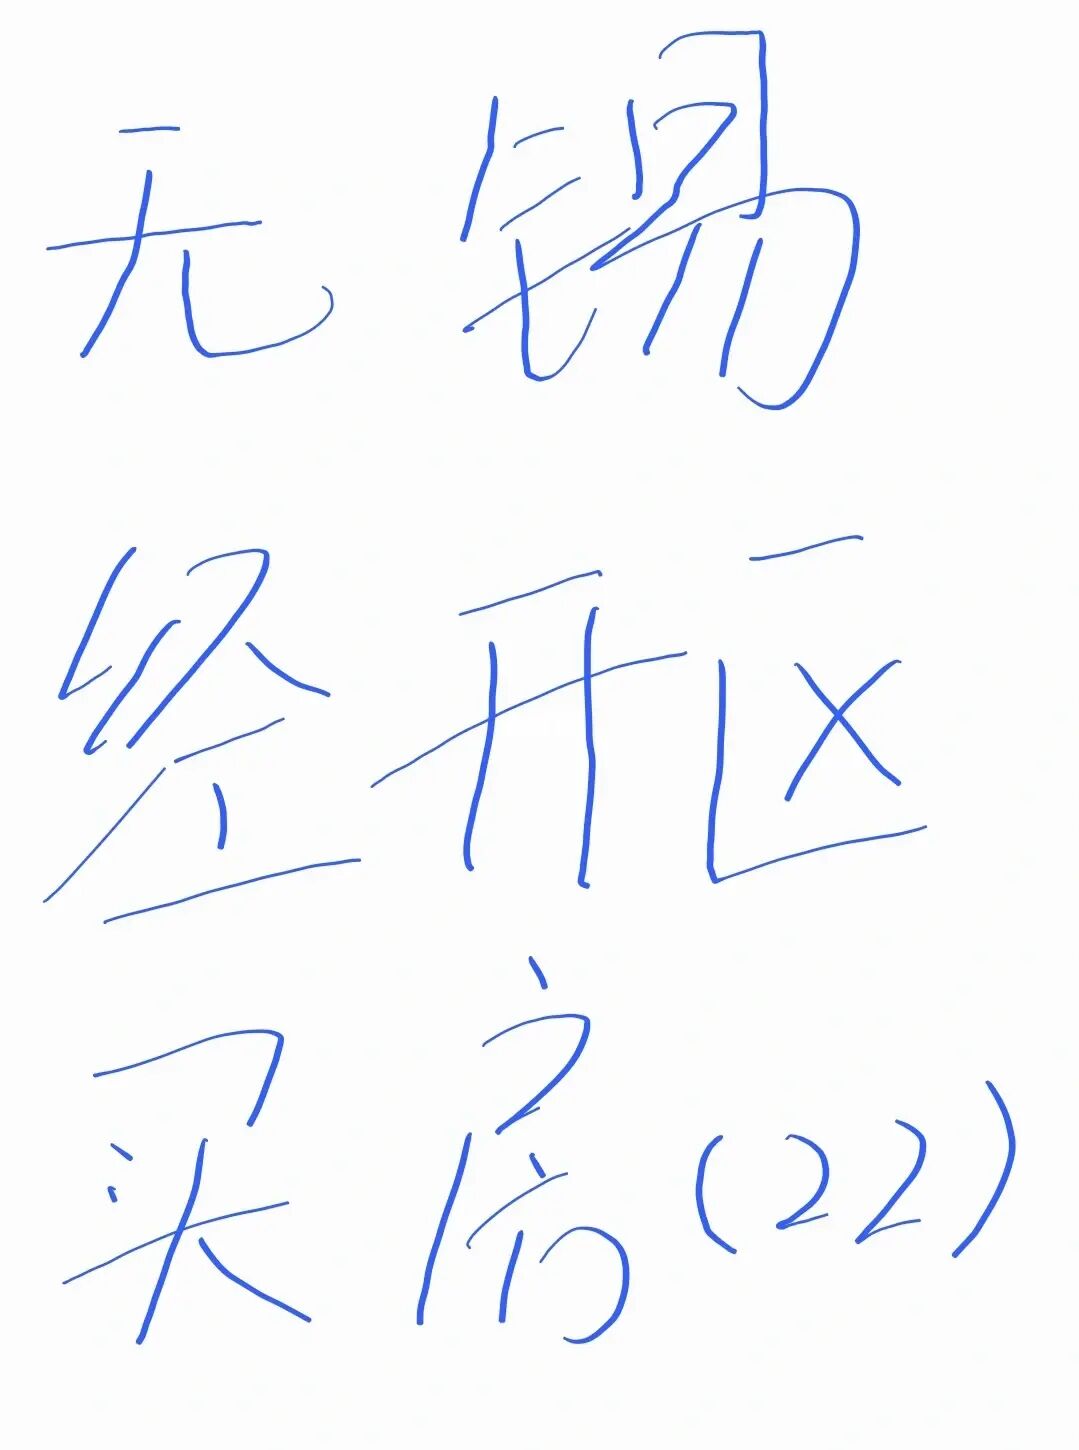 无锡
经开区
买房(22)